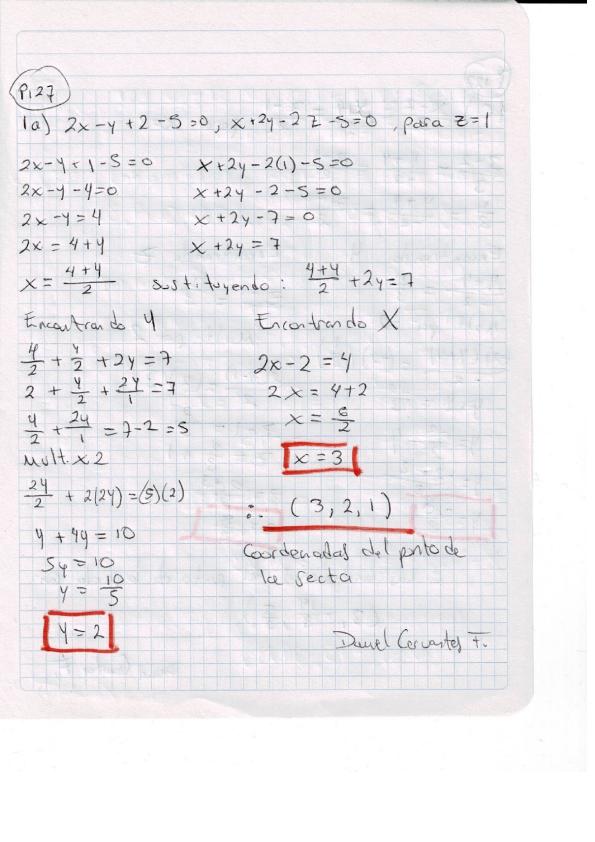 P.127
1a) 2x-y+2-5=0, x+2y-2z-5=0, para z=1
2x-y+1-5=0
2x-y-4=0
2x-y=4
2x=4+y
x=\frac{4+y}{2}
x+2y-2(1)-5=0
x+2y-2-5=0
x+2y-7=0
x+2y=7
sustituyendo: \frac{4+y}{2}+2y=7
Encontrando y
\frac{4}{2}+\frac{y}{2}+2y=7
2+\frac{y}{2}+\frac{2y}{1}=7
\frac{y}{2}+\frac{2y}{1}=7-2=5
mult. x 2
\frac{2y}{2}+2(2y)=(5)(2)
y+4y=10
5y=10
y=\frac{10}{5}
y=2
Encontrando X
2x-2=4
2x=4+2
x=\frac{6}{2}
x=3
∴ (3,2,1)
Coordenadas del pnto de
la recta
Daniel Cervantes F.